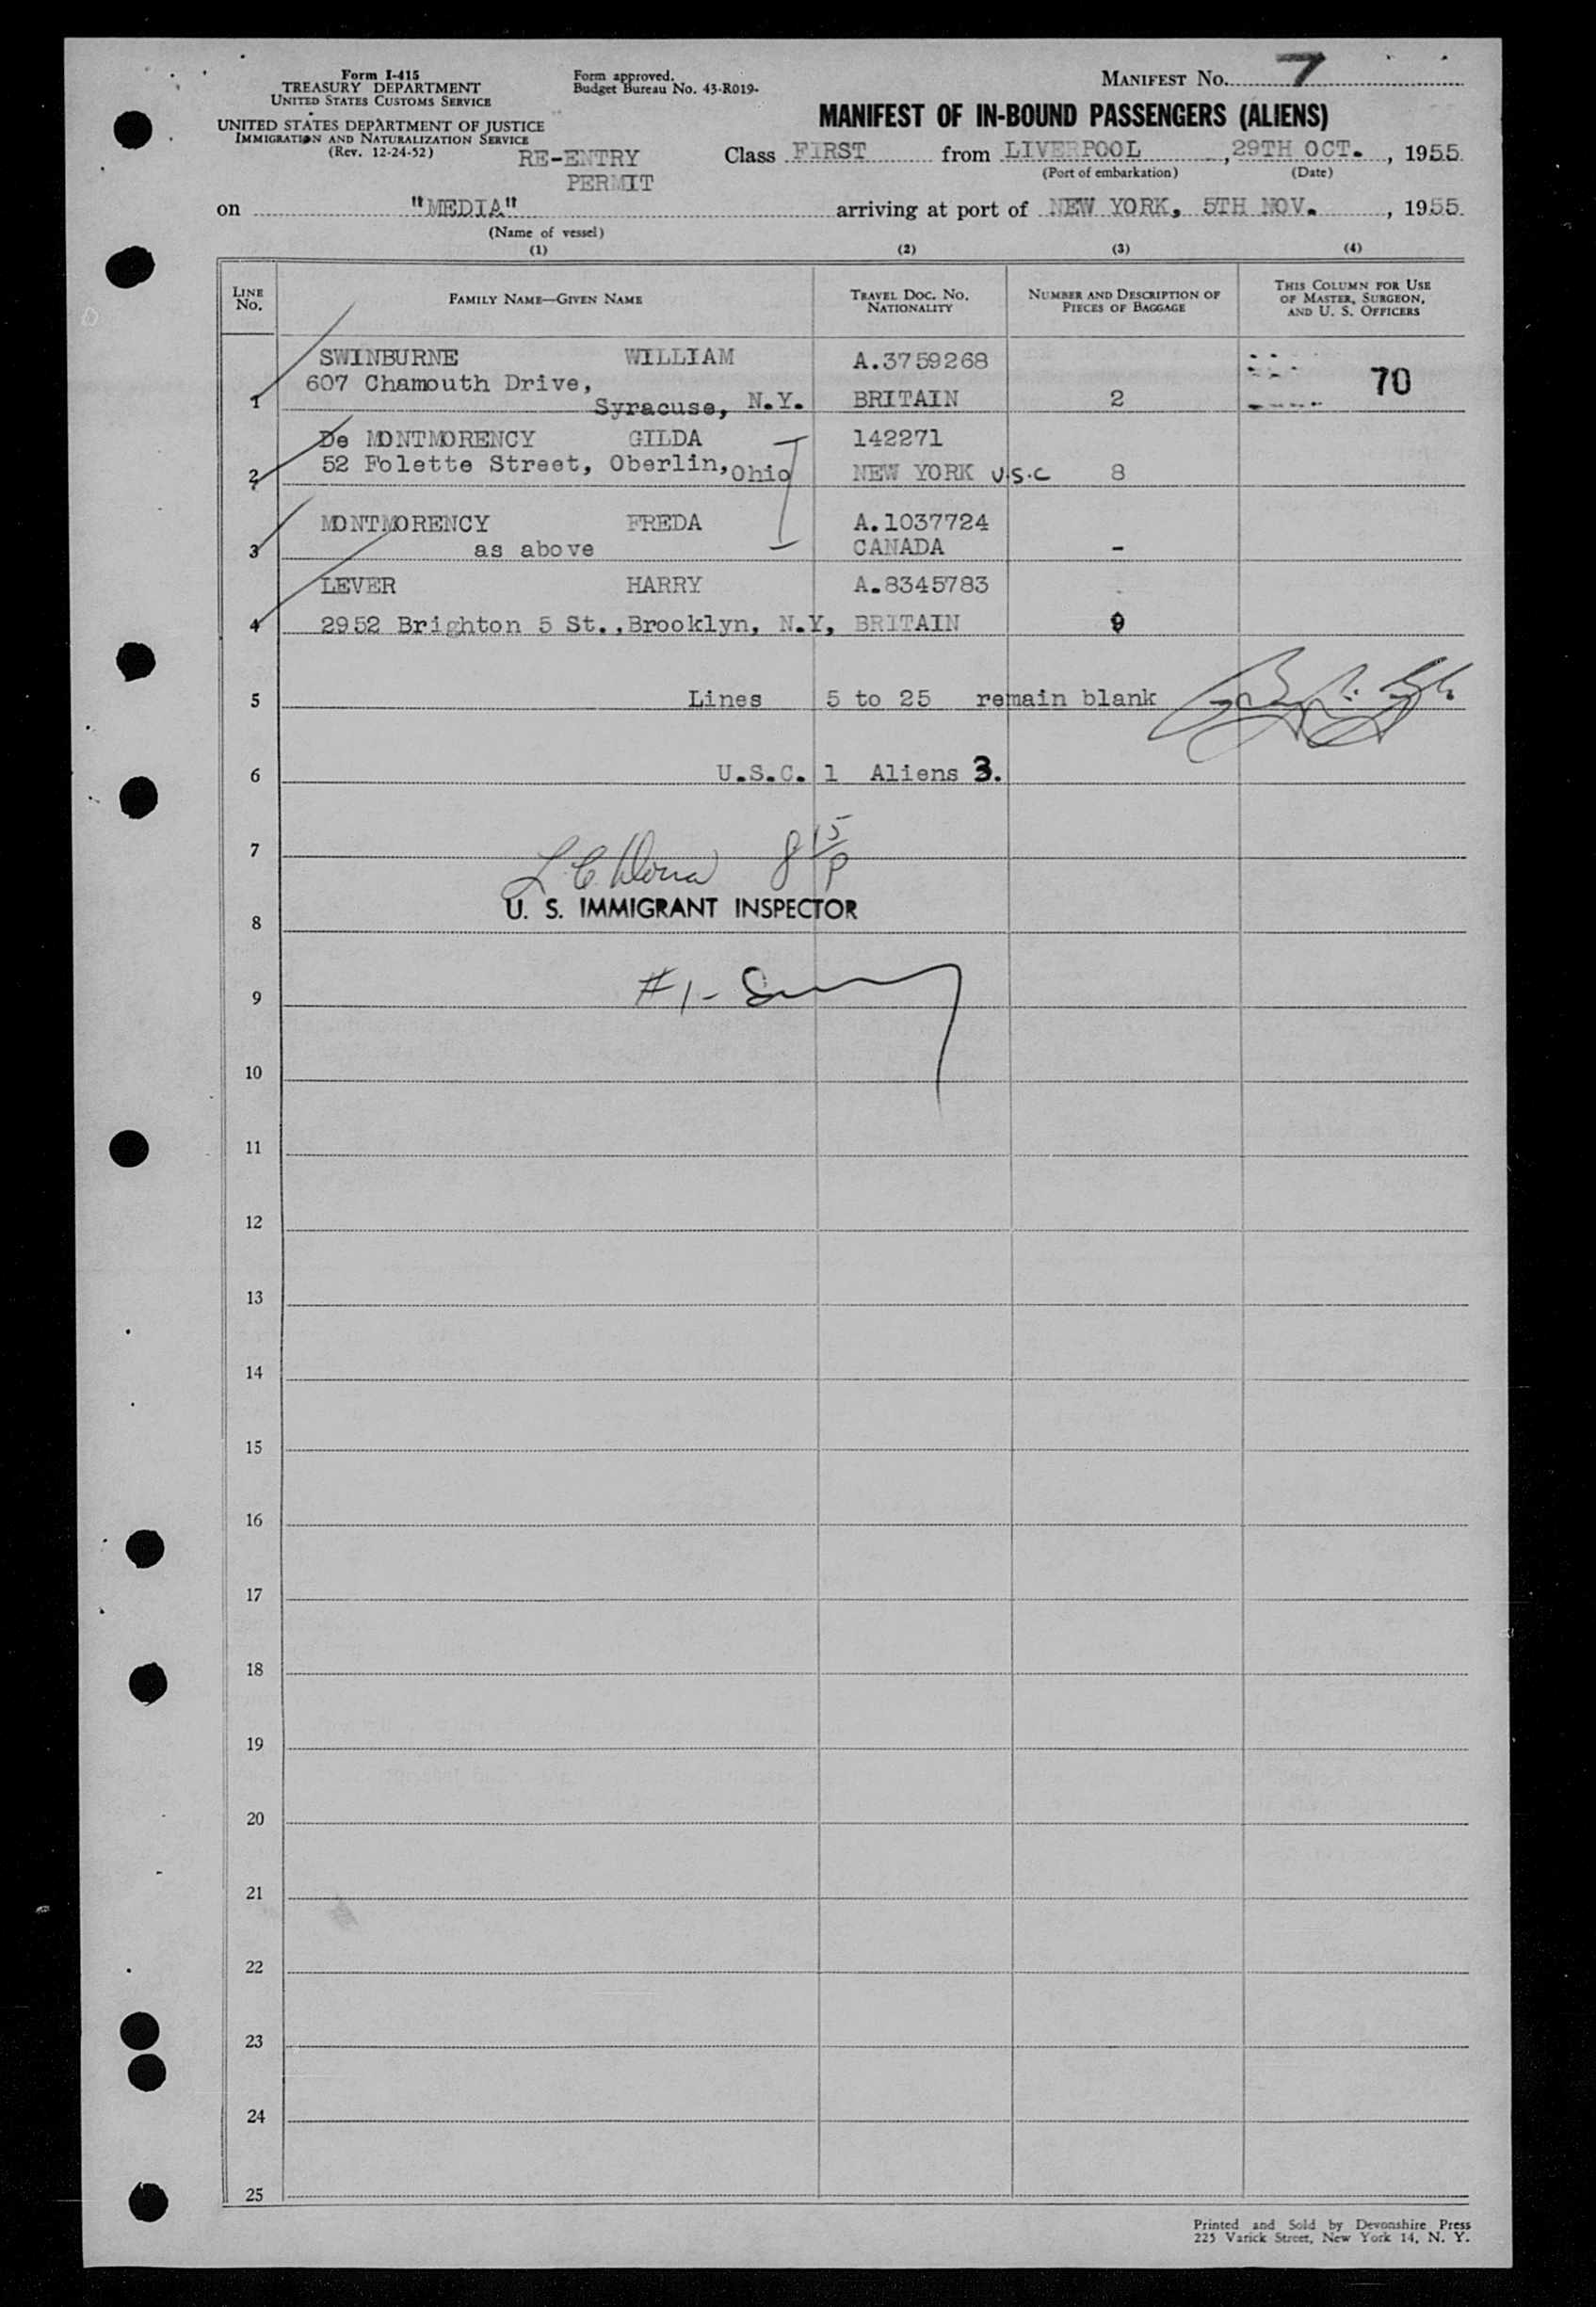 Form I-415
TREASURY DEPARTMENT
UNITED STATES CUSTOMS SERVICE
UNITED STATES DEPARTMENT OF JUSTICE
IMMIGRATION AND NATURALIZATION SERVICE
(Rev. 12-24-52)
Form approved.
Budget Bureau No. 43-R019-
MANIFEST No. 7
MANIFEST OF IN-BOUND PASSENGERS (ALIENS)
RE-ENTRY
PERMIT
Class FIRST from LIVERPOOL, 29TH OCT., 1955
(Port of embarkation) (Date)
on "MEDIA" arriving at port of NEW YORK, 5TH NOV., 1955
(Name of vessel)
(1) (2) (3) (4)
LINE No. FAMILY NAME—GIVEN NAME TRAVEL DOC. NO. NATIONALITY NUMBER AND DESCRIPTION OF PIECES OF BAGGAGE THIS COLUMN FOR USE OF MASTER, SURGEON, AND U. S. OFFICERS
SWINBURNE WILLIAM A.3759268
607 Chamouth Drive, 70
1 Syracuse, N.Y. BRITAIN 2
De MONTMORENCY GILDA 142271
2 52 Folette Street, Oberlin, Ohio NEW YORK U.S.C 8
MONTMORENCY FREDA A.1037724
3 as above CANADA -
LEVER HARRY A.8345783
4 2952 Brighton 5 St., Brooklyn, N.Y, BRITAIN 9
5 Lines 5 to 25 remain blank
6 U.S.C. 1 Aliens 3.
7 8 15/P
U. S. IMMIGRANT INSPECTOR
8
9 #1-
10
11
12
13
14
15
16
17
18
19
20
21
22
23
24
25
Printed and Sold by Devonshire Press
225 Varick Street, New York 14, N. Y.